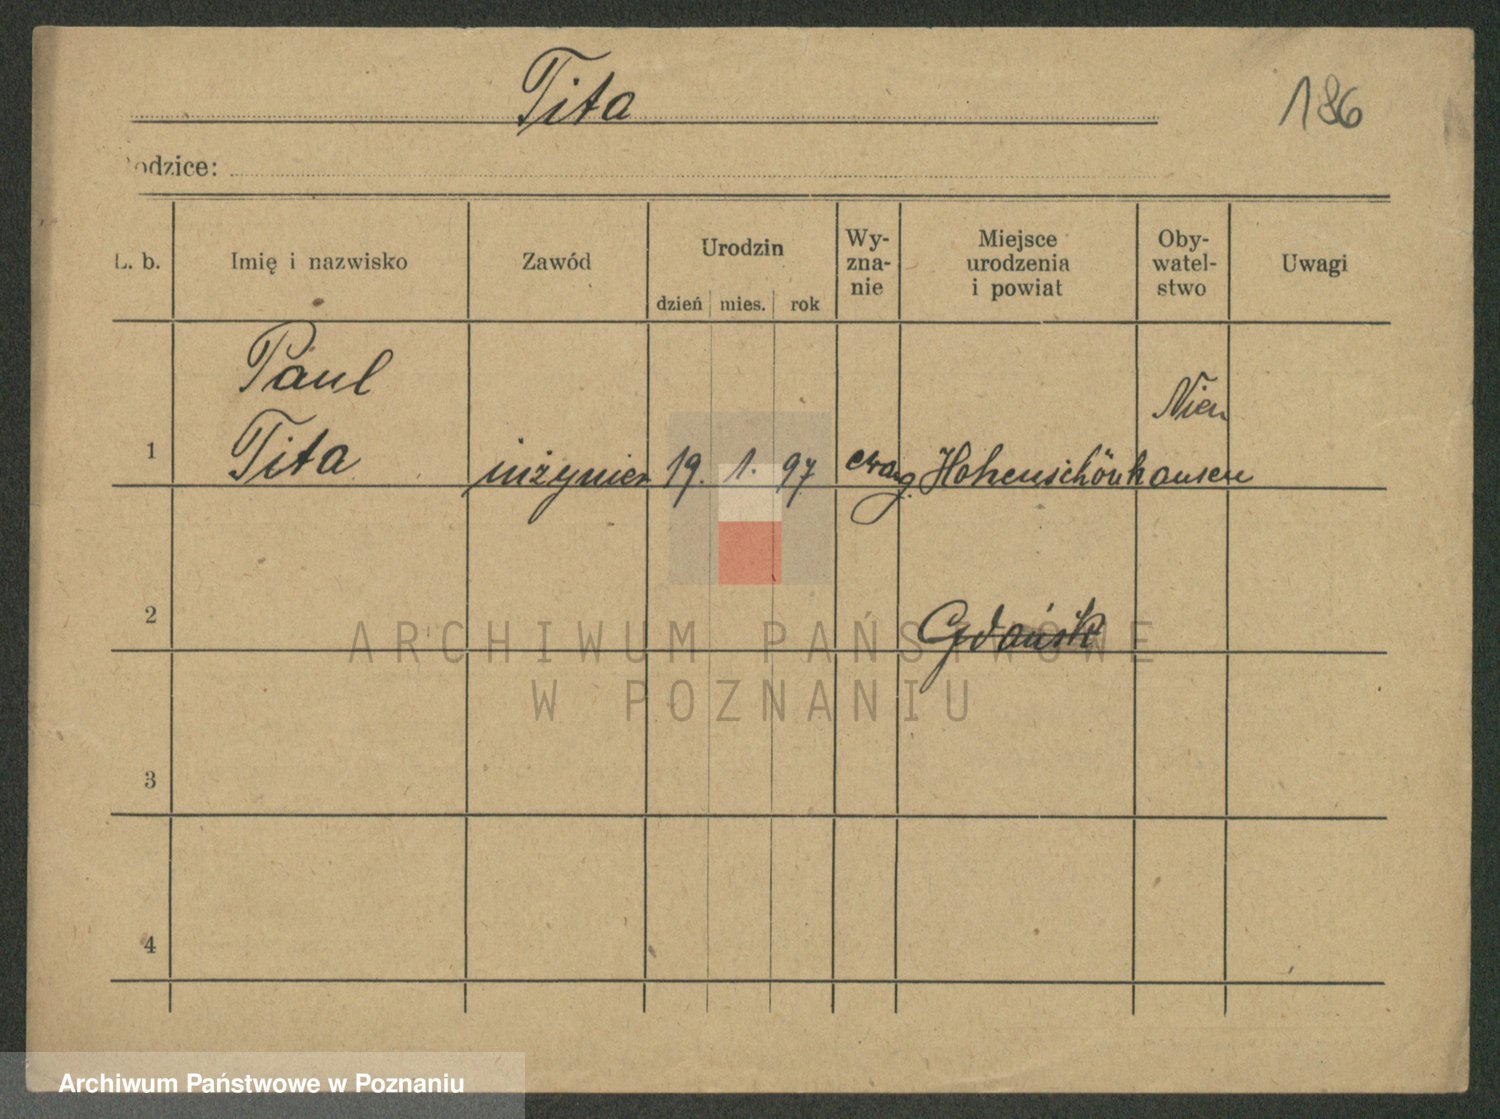 Tita
186
odzice:
L. b.
Imię i nazwisko
Zawód
Urodzin
dzień mies. rok
Wy-
zna-
nie
Miejsce
urodzenia
i powiat
Oby-
watel-
stwo
Uwagi
Paul
Tita
1
inżynier 19. 1. 97 ewang. Hohenschönhausen
Niem
2
Gdańsk
3
4
ARCHIWUM PAŃSTWOWE
W POZNANIU
Archiwum Państwowe w Poznaniu